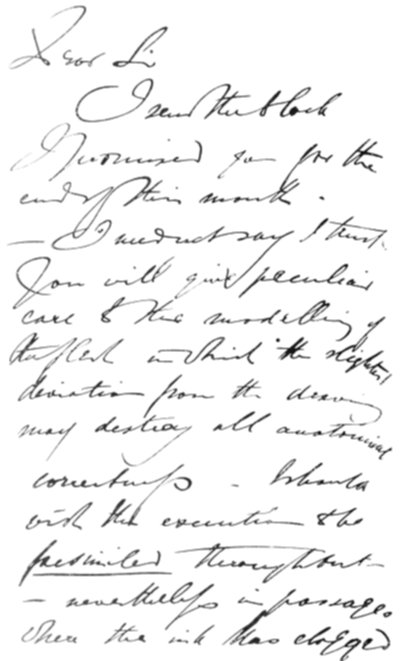 Dear Sir
I send the block
I promised you for the
end of this month.
— I need not say I trust
You will give peculiar
care to the modelling of
the flesh in which the slightest
deviation from the drawing
may destroy all anatomical
correctness – I should
wish the execution to be
facsimiled throughout —
– nevertheless in passages
where the ink has clogged